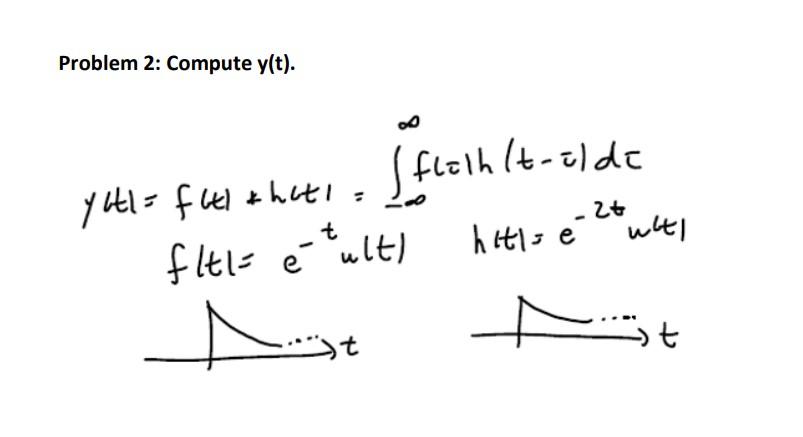 Problem 2: Compute y(t).
y(t) = f(t) * h(t) = ∫_{-∞}^{∞} f(τ) h(t-τ) dτ
f(t) = e^{-t} u(t) h(t) = e^{-2t} u(t)
t t